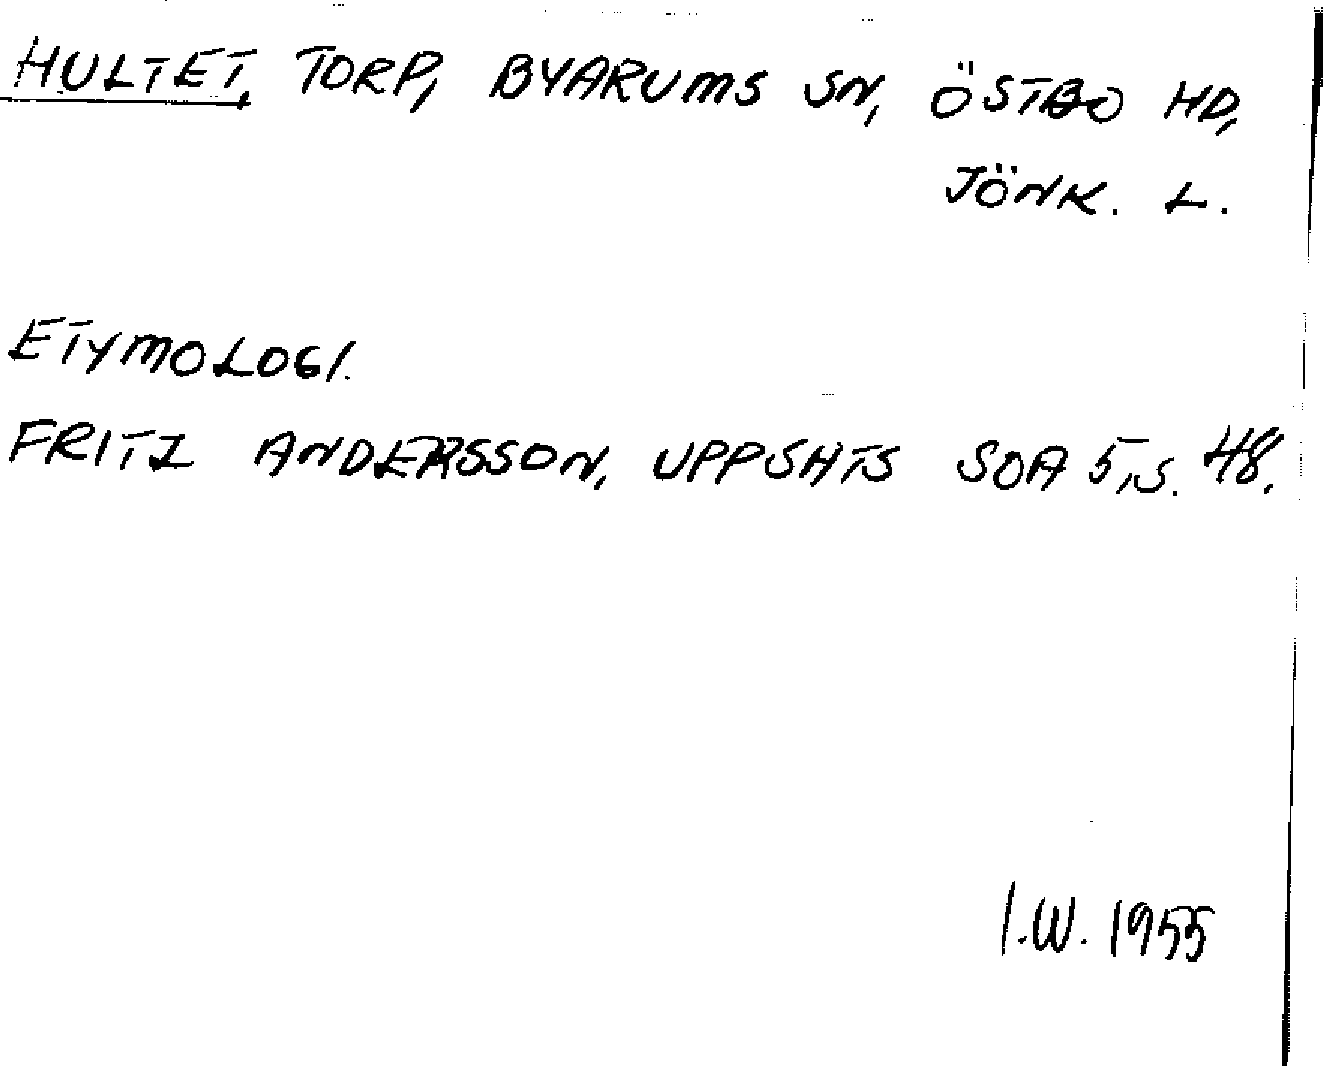 HULTET, TORP, BYARUMS SN, ÖSTBO HD,
JÖNK. L.
ETYMOLOGI.
FRITZ ANDERSSON, UPPSATS SOA 5, S. 48.
I.W. 1955